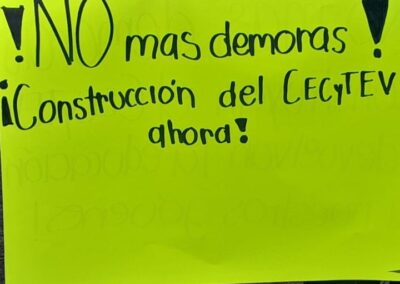 ¡NO mas demoras!
¡Construcción del CECyTEV
ahora!